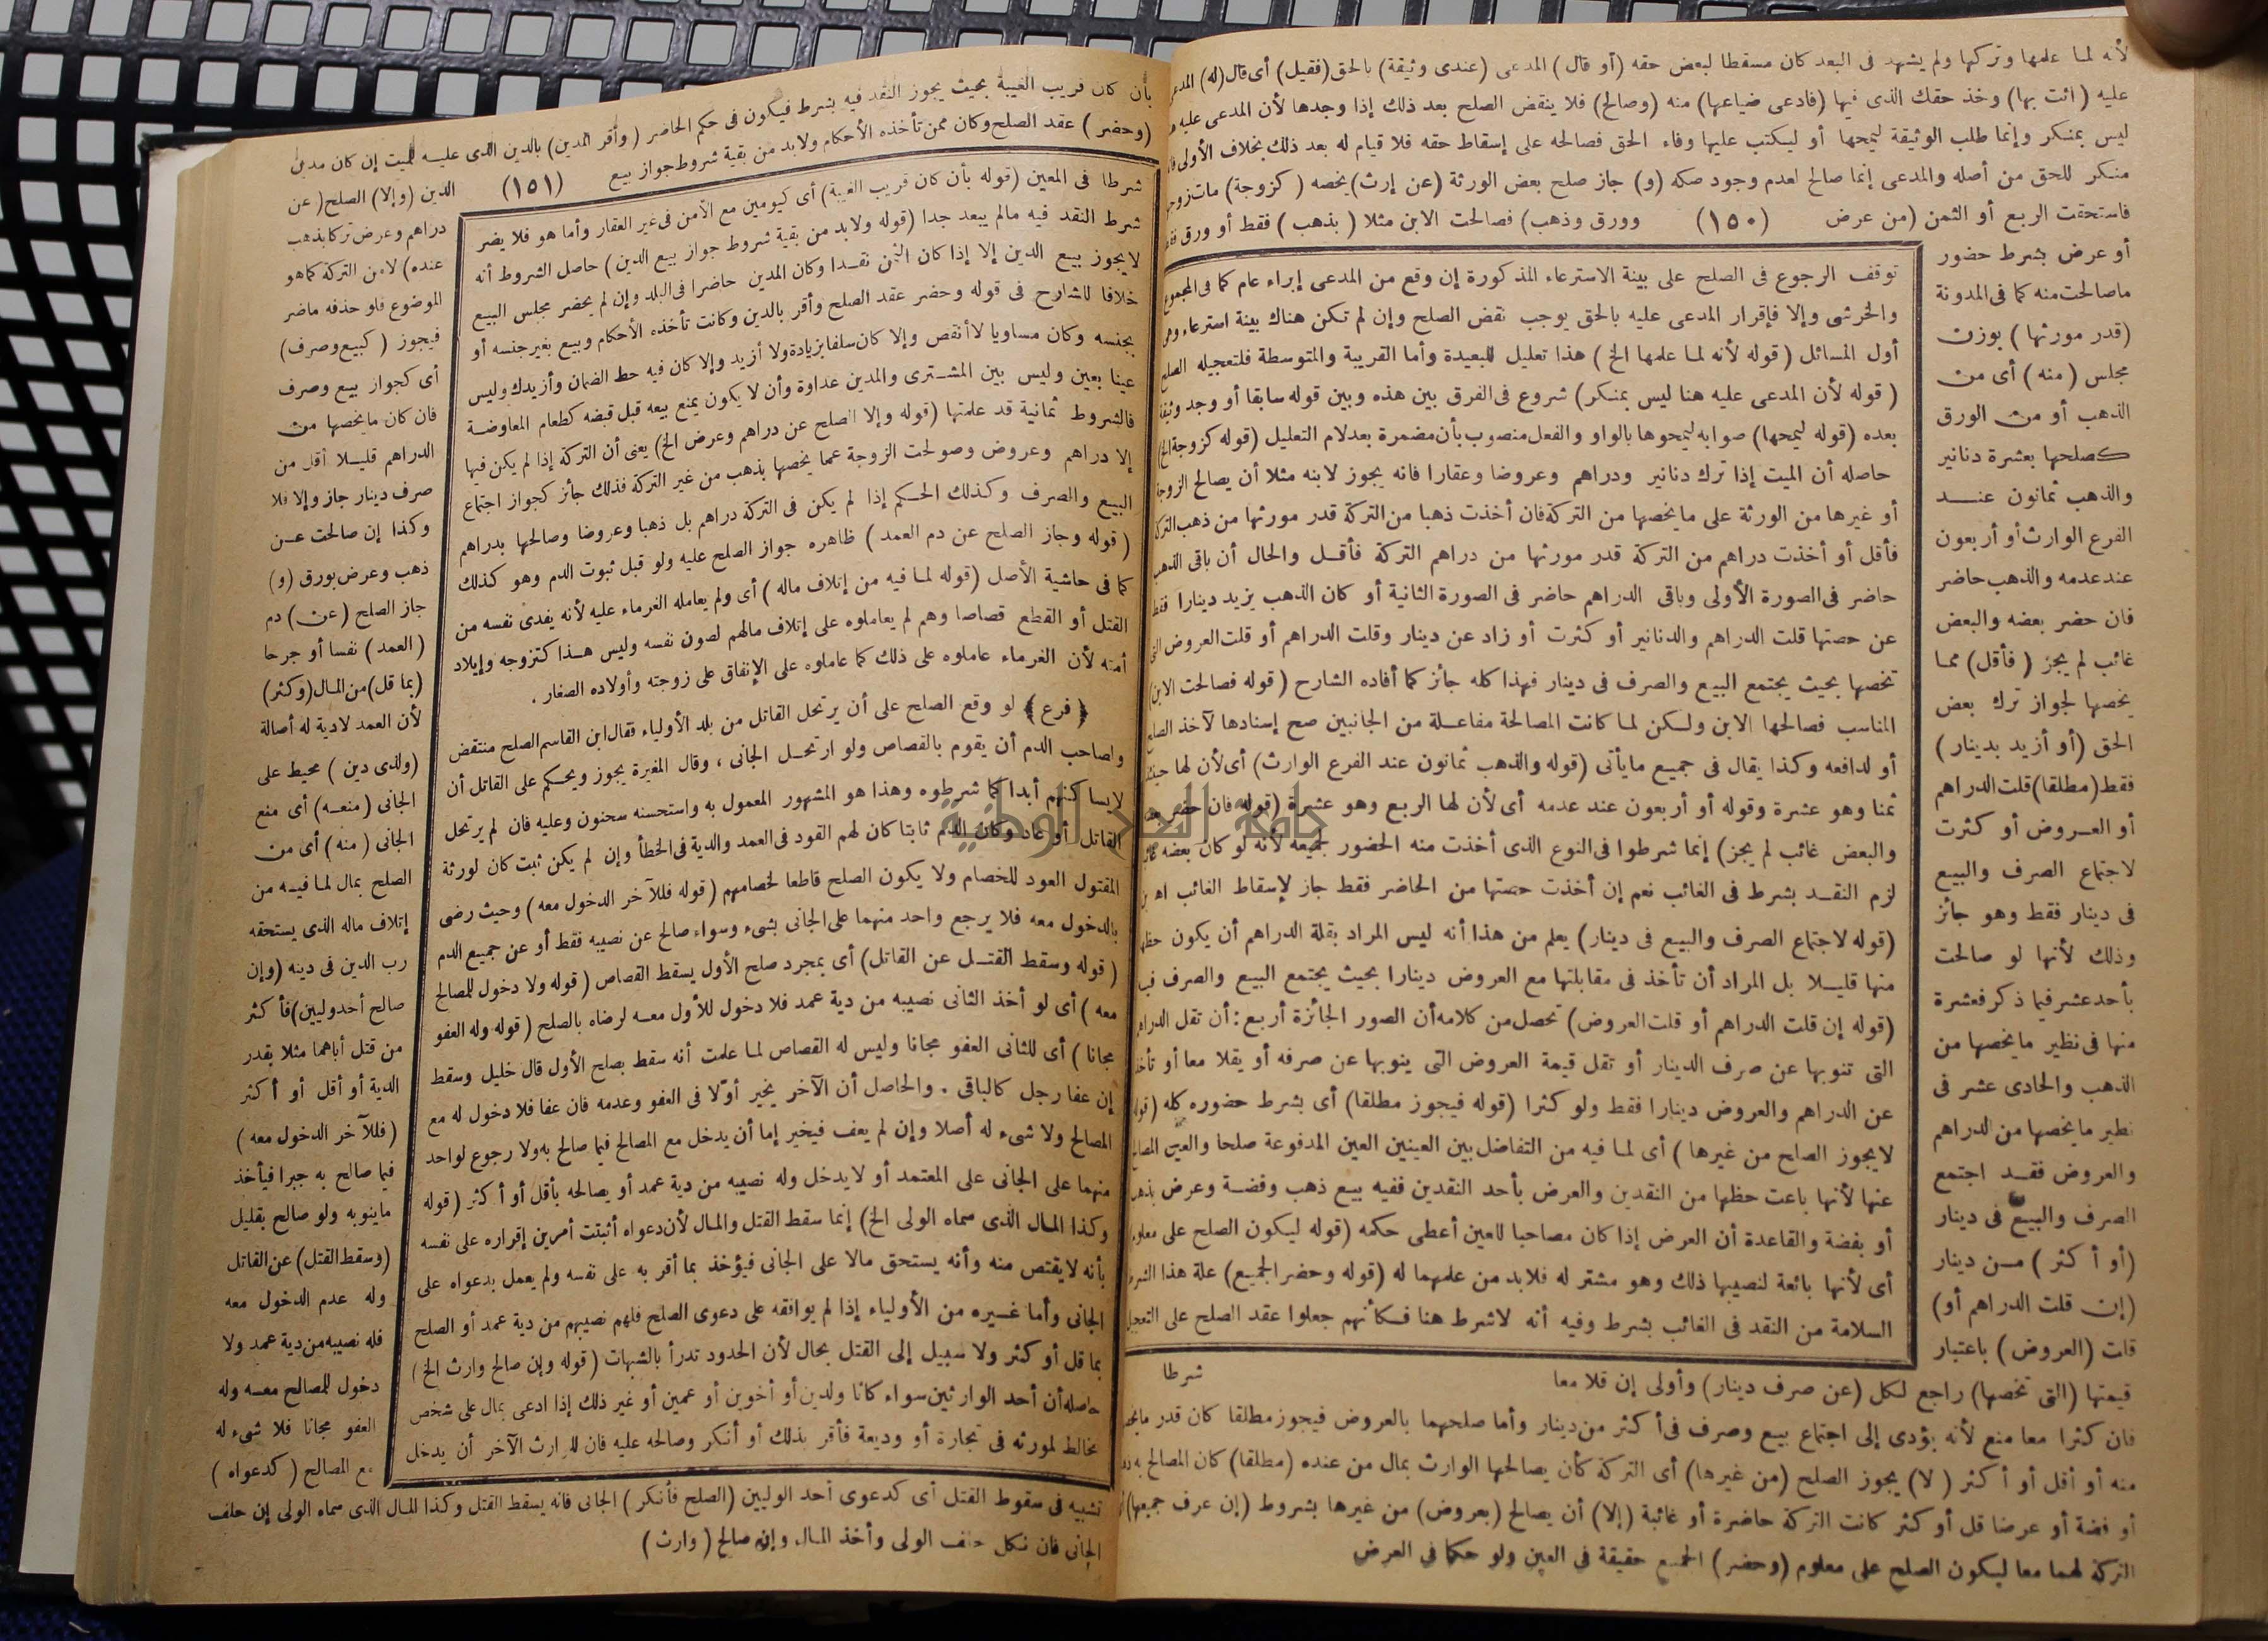 لأنه لما علمها وتركها ولم يشهد فى البعد كان مسقطا لبعض حقه (أو قال) المدعى (عندى وثيقة) بالحق (فقيل) أى قال (له) المدعى
عليه (ائت بها) وخذ حقك الذى فيها (فادعى ضياعها) منه (وصالح) فلا ينقض الصلح بعد ذلك إذا وجدها لأن المدعى عليه
ليس بمنكر وإنما طلب الوثيقة ليمحها أو ليكتب عليها وفاء الحق فصالحه على إسقاط حقه فلا قيام له بعد ذلك بخلاف الأولى
منكر للحق من أصله والمدعى إنما صالح لعدم وجود صكه (و) جاز صلح بعض الورثة (عن إرث) يخصه (كزوجة) مات زوجها
فاستحقت الربع أو الثمن (من عرض (١٥٠) وورق وذهب) فصالحت الابن مثلا (بذهب) فقط أو ورق فقط
أو عرض بشرط حضور
ماصالحت منه كما فى المدونة
(قدر مورثها) بوزن
مجلس (منه) أى من
الذهب أو من الورق
كصلحها بعشرة دنانير
والذهب ثمانون عند
الفرع الوارث أو أربعون
عند عدمه والذهب حاضر
فان حضر بعضه والبعض
غائب لم يجز (فأقل) مما
يخصها لجواز ترك بعض
الحق (أو أزيد بدينار)
فقط (مطلقا) قلت الدراهم
أو العروض أو كثرت
لاجتماع الصرف والبيع
فى دينار فقط وهو جائز
وذلك لأنها لو صالحت
بأحد عشر فيما ذكر فعشرة
منها فى نظير مايخصها من
الذهب والحادى عشر فى
نظير مايخصها من الدراهم
والعروض فقد اجتمع
الصرف والبيع فى دينار
(أو أكثر) من دينار
(إن قلت الدراهم أو)
قلت (العروض) باعتبار
توقف الرجوع فى الصلح على بينة الاسترعاء المذكورة إن وقع من المدعى إبراء عام كما فى المجموع
والخرشى وإلا فإقرار المدعى عليه بالحق يوجب نقض الصلح وإن لم تكن هناك بينة استرعاء
أول المسائل (قوله لأنه لما علمها الخ) هذا تعليل للبعيدة وأما القريبة والمتوسطة فلتعجيله الصلح
(قوله لأن المدعى عليه هنا ليس بمنكر) شروع فى الفرق بين هذه وبين قوله سابقا أو وجد وثيقة
بعده (قوله ليمحها) صوابه ليمحوها بالواو والفعل منصوب بأن مضمرة بعد لام التعليل (قوله كزوجة الخ)
حاصله أن الميت إذا ترك دنانير ودراهم وعروضا وعقارا فانه يجوز لابنه مثلا أن يصالح الزوجة
أو غيرها من الورثة على مايخصها من التركة فان أخذت ذهبا من التركة قدر مورثها من ذهب التركة
فأقل أو أخذت دراهم من التركة قدر مورثها من دراهم التركة فأقل والحال أن باقى الذهب
حاضر فى الصورة الأولى وباقى الدراهم حاضر فى الصورة الثانية أو كان الذهب يزيد دينارا فقط
عن حصتها قلت الدراهم والدنانير أو كثرت أو زاد عن دينار وقلت الدراهم أو قلت العروض التى
تخصها بحيث يجتمع البيع والصرف فى دينار فهذا كله جائز كما أفاده الشارح (قوله فصالحت الابن)
المناسب فصالحها الابن ولكن لما كانت المصالحة مفاعلة من الجانبين صح إسنادها لآخذ الصلح
أو لدافعه وكذا يقال فى جميع مايأتى (قوله والذهب ثمانون عند الفرع الوارث) أى لأن لها حينئذ
ثمنا وهو عشرة وقوله أو أربعون عند عدمه أى لأن لها الربع وهو عشرة (قوله فان حضر بعضه
والبعض غائب لم يجز) إنما شرطوا فى النوع الذى أخذت منه الحضور لجميعه لأنه لو كان بعضه غائبا
لزم النقد بشرط فى الغائب نعم إن أخذت حصتها من الحاضر فقط جاز لإسقاط الغائب اه
(قوله لاجتماع الصرف والبيع فى دينار) يعلم من هذا أنه ليس المراد بقلة الدراهم أن يكون حظها
منها قليلا بل المراد أن تأخذ فى مقابلتها مع العروض دينارا بحيث يجتمع البيع والصرف فيه
(قوله إن قلت الدراهم أو قلت العروض) تحصل من كلامه أن الصور الجائزة أربع: أن تقل الدراهم
التى تنوبها عن صرف الدينار أو تقل قيمة العروض التى ينوبها عن صرفه أو يقلا معا أو تأخذ
عن الدراهم والعروض دينارا فقط ولو كثرا (قوله فيجوز مطلقا) أى بشرط حضوره كله (قوله
لايجوز الصلح من غيرها) أى لما فيه من التفاضل بين العينين العين المدفوعة صلحا والعين المصالح
عنها لأنها باعت حظها من النقدين والعرض بأحد النقدين ففيه بيع ذهب وفضة وعرض بذهب
أو بفضة والقاعدة أن العرض إذا كان مصاحبا للعين أعطى حكمه (قوله ليكون الصلح على معلوم)
أى لأنها بائعة لنصيبها ذلك وهو مشتر له فلابد من علمهما له (قوله وحضر الجميع) علة هذا الشرط
السلامة من النقد فى الغائب بشرط وفيه أنه لاشرط هنا فكأنهم جعلوا عقد الصلح على التعجيل
شرطا
قيمتها (التى تخصها) راجع لكل (عن صرف دينار) وأولى إن قلا معا
فان كثرا معا منع لأنه يؤدى إلى اجتماع بيع وصرف فى أكثر من دينار وأما صلحهما بالعروض فيجوز مطلقا كان قدر مايخصها
منه أو أقل أو أكثر (لا) يجوز الصلح (من غيرها) أى التركة كأن يصالحها الوارث بمال من عنده (مطلقا) كان المصالح به
أو فضة أو عرضا قل أو كثر كانت التركة حاضرة أو غائبة (إلا) أن يصالح (بعروض) من غيرها بشروط (إن عرف جميعها)
التركة لهما معا ليكون الصلح على معلوم (وحضر) الجميع حقيقة فى العين ولو حكما فى العرض
بأن كان قريب الغيبة بحيث يجوز النقد فيه بشرط فيكون فى حكم الحاضر (وأقر المدين) بالدين الذى عليه للميت إن كان مدين
(وحضر) عقد الصلح وكان ممن تأخذه الأحكام ولابد من بقية شروط جواز بيع (١٥١) الدين (وإلا) الصلح (عن
دراهم وعرض تركا بذهب
عنده) لا من التركة كما هو
الموضوع فلو حذفه ماضر
فيجوز (كبيع وصرف)
أى كجواز بيع وصرف
فان كان مايخصها من
الدراهم قليلا أقل من
صرف دينار جاز وإلا فلا
وكذا إن صالحت عن
ذهب وعرض بورق (و)
جاز الصلح (عن) دم
(العمد) نفسا أو جرحا
(بما قل) من المال (وكثر)
لأن العمد لادية له أصالة
(ولذى دين) محيط على
الجانى (منعه) أى منع
الجانى (منه) أى من
الصلح بمال لما فيه من
إتلاف ماله الذى يستحقه
رب الدين فى دينه (وإن
صالح أحد وليين) فأكثر
من قتل أباهما مثلا بقدر
الدية أو أقل أو أكثر
(فللآخر الدخول معه)
فيما صالح به جبرا فيأخذ
ماينوبه ولو صالح بقليل
(وسقط القتل) عن القاتل
وله عدم الدخول معه
فله نصيبه من دية عمد ولا
دخول للمصالح معه وله
العفو مجانا فلا شىء له
مع المصالح (كدعواه)
شرطا فى المعين (قوله بأن كان قريب الغيبة) أى كيومين مع الأمن فى غير العقار وأما هو فلا يضر
شرط النقد فيه مالم يبعد جدا (قوله ولابد من بقية شروط جواز بيع الدين) حاصل الشروط أنه
لايجوز بيع الدين إلا إذا كان الثمن نقدا وكان المدين حاضرا فى البلد وإن لم يحضر مجلس البيع
خلافا للشارح فى قوله وحضر عقد الصلح وأقر بالدين وكانت تأخذه الأحكام وبيع بغير جنسه أو
بجنسه وكان مساويا لا أنقص وإلا كان سلفا بزيادة ولا أزيد وإلا كان فيه حط الضمان وأزيدك وليس
عينا بعين وليس بين المشترى والمدين عداوة وأن لا يكون يمنع بيعه قبل قبضه كطعام المعاوضة
فالشروط ثمانية قد علمتها (قوله وإلا الصلح عن دراهم وعرض الخ) يعنى أن التركة إذا لم يكن فيها
إلا دراهم وعروض وصولحت الزوجة عما يخصها بذهب من غير التركة فذلك جائز كجواز اجتماع
البيع والصرف وكذلك الحكم إذا لم يكن فى التركة دراهم بل ذهبا وعروضا وصالحها بدراهم
(قوله وجاز الصلح عن دم العمد) ظاهره جواز الصلح عليه ولو قبل ثبوت الدم وهو كذلك
كما فى حاشية الأصل (قوله لما فيه من إتلاف ماله) أى ولم يعامله الغرماء عليه لأنه يفدى نفسه من
القتل أو القطع قصاصا وهم لم يعاملوه على إتلاف مالهم لصون نفسه وليس هذا كتزوجه وإيلاد
أمته لأن الغرماء عاملوه على ذلك كما عاملوه على الإنفاق على زوجته وأولاده الصغار .
﴿فرع﴾ لو وقع الصلح على أن يرتحل القاتل من بلد الأولياء فقال ابن القاسم الصلح منتقض
ولصاحب الدم أن يقوم بالقصاص ولو ارتحل الجانى ، وقال المغيرة يجوز ويحكم على القاتل أن
لايساكنهم أبدا كما شرطوه وهذا هو المشهور المعمول به واستحسنه سحنون وعليه فان لم يرتحل
القاتل أو عاد وكان الدم ثابتا كان لهم القود فى العمد والدية فى الخطأ وإن لم يكن ثبت كان لورثة
المقتول العود للخصام ولا يكون الصلح قاطعا لخصامهم (قوله فللآخر الدخول معه) وحيث رضى
بالدخول معه فلا يرجع واحد منهما على الجانى بشىء وسواء صالح عن نصيبه فقط أو عن جميع الدم
(قوله وسقط القتل عن القاتل) أى بمجرد صلح الأول يسقط القصاص (قوله ولا دخول للمصالح
معه) أى لو أخذ الثانى نصيبه من دية عمد فلا دخول للأول معه لرضاه بالصلح (قوله وله العفو
مجانا) أى للثانى العفو مجانا وليس له القصاص لما علمت أنه سقط بصلح الأول قال خليل وسقط
إن عفا رجل كالباقى . والحاصل أن الآخر يخير أوّلا فى العفو وعدمه فان عفا فلا دخول له مع
المصالح ولا شىء له أصلا وإن لم يعف فيخير إما أن يدخل مع المصالح فيما صالح به ولا رجوع لواحد
منهما على الجانى على المعتمد أو لايدخل وله نصيبه من دية عمد أو يصالحه بأقل أو أكثر (قوله
وكذا المال الذى سماه الولى الخ) إنما سقط القتل والمال لأن دعواه أثبتت أمرين إقراره على نفسه
بأنه لايقتص منه وأنه يستحق مالا على الجانى فيؤخذ بما أقر به على نفسه ولم يعمل بدعواه على
الجانى وأما غيره من الأولياء إذا لم يوافقه على دعوى الصلح فلهم نصيبهم من دية عمد أو الصلح
بما قل أو كثر ولا سبيل إلى القتل بحال لأن الحدود تدرأ بالشبهات (قوله وإن صالح وارث الخ)
حاصله أن أحد الوارثين سواء كانا ولدين أو أخوين أو عمين أو غير ذلك إذا ادعى بمال على شخص
مخالط لمورثه فى تجارة أو وديعة فأقر بذلك أو أنكر وصالحه عليه فان للوارث الآخر أن يدخل
تشبيه فى سقوط القتل أى كدعوى أحد الوليين (الصلح فأنكر) الجانى فانه يسقط القتل وكذا المال الذى سماه الولى إن حلف
الجانى فان نكل حلف الولى وأخذ المال وإن صالح (وارث)
جامعة النجاح الوطنية